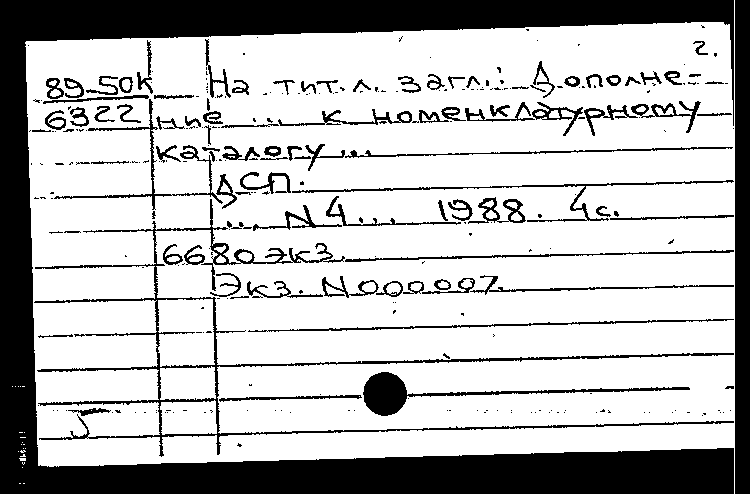 2.
89-50К На тит.л. загл.: Дополне-
6322 ние ... к номенклатурному
каталогу ...
ДСП.
..., N 4 ... 1988. 4 с.
6680 экз.
Экз. N 000007.
5